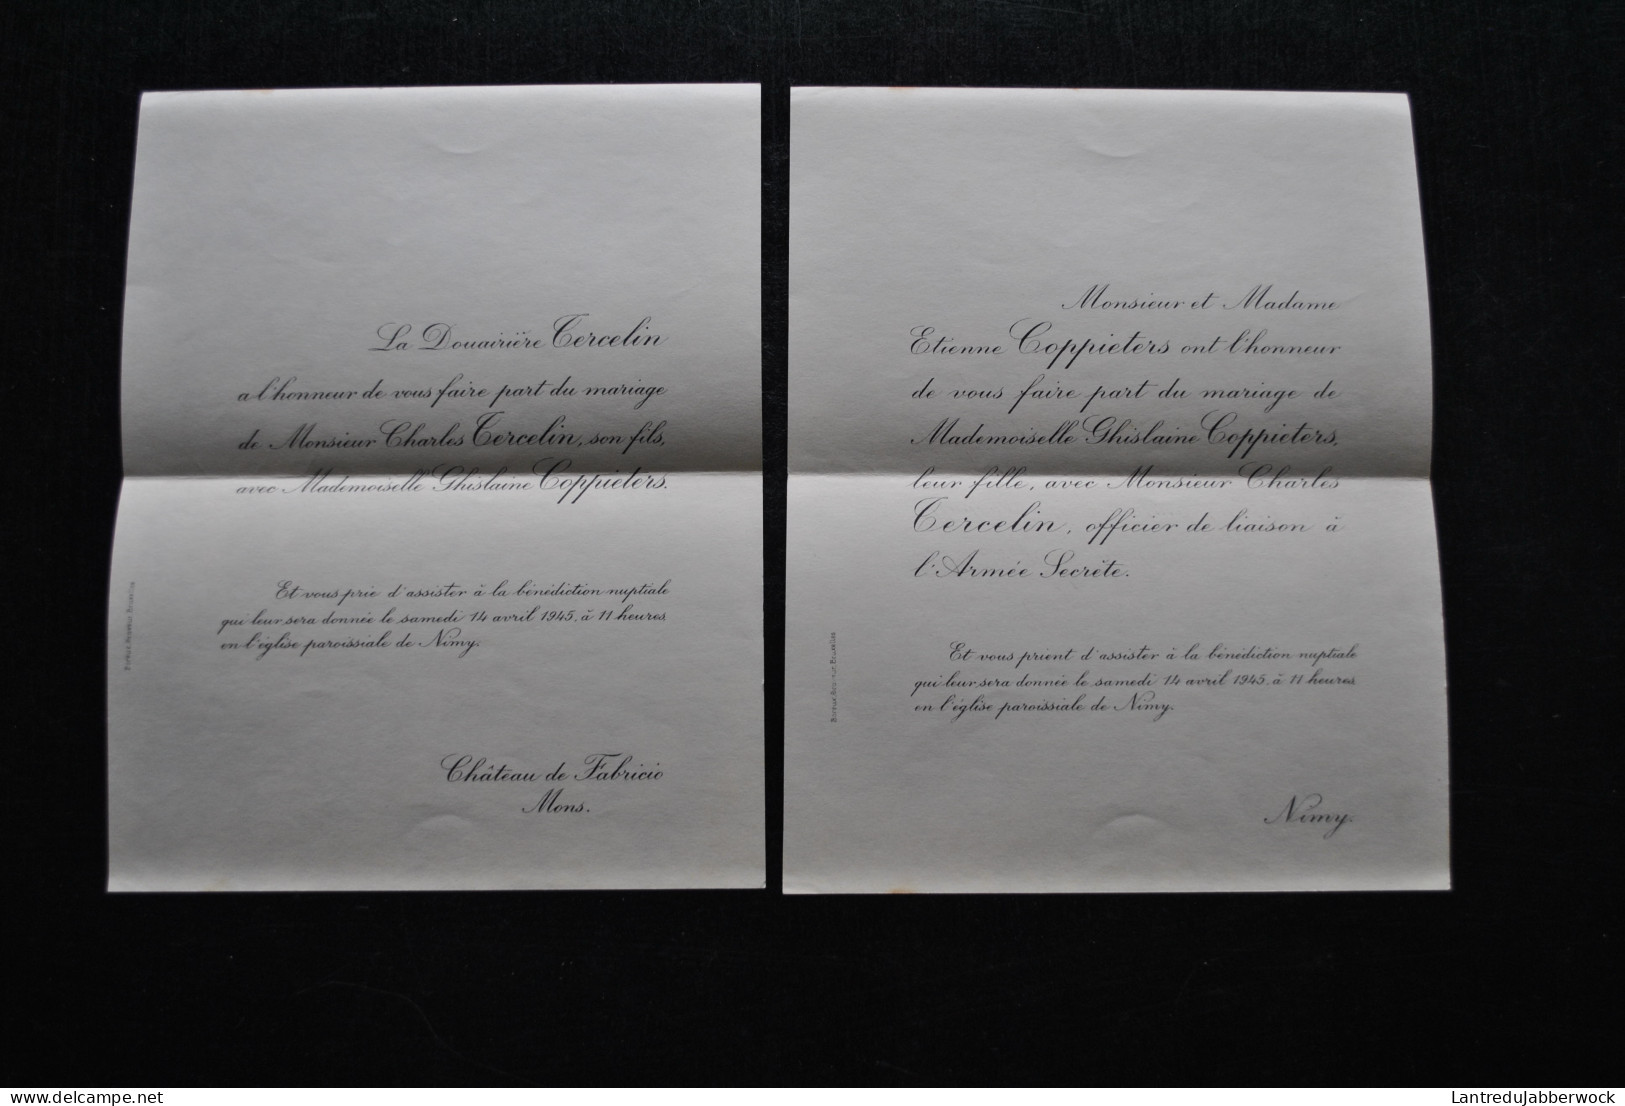 La Douairière Tercelin
a l'honneur de vous faire part du mariage
de Monsieur Charles Tercelin, son fils,
avec Mademoiselle Ghislaine Coppieters.
Et vous prie d'assister à la bénédiction nuptiale
qui leur sera donnée le samedi 14 avril 1945, à 11 heures
en l'église paroissiale de Nimy.
Château de Fabricio
Mons.
Monsieur et Madame
Etienne Coppieters ont l'honneur
de vous faire part du mariage de
Mademoiselle Ghislaine Coppieters,
leur fille, avec Monsieur Charles
Tercelin, officier de liaison à
l'Armée Secrète.
Et vous prient d'assister à la bénédiction nuptiale
qui leur sera donnée le samedi 14 avril 1945, à 11 heures
en l'église paroissiale de Nimy.
Nimy.
delcampe.net
LantreduJabberwock